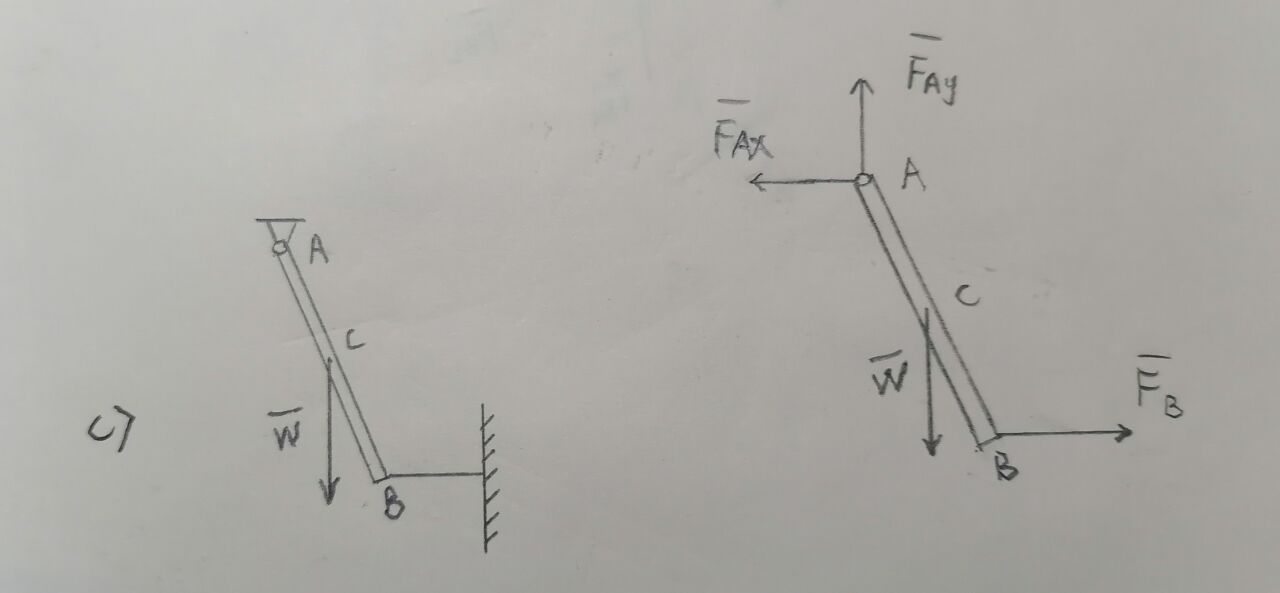 c)
A
C
W̅
B
F̅Ay
F̅Ax
A
C
W̅
F̅B
B